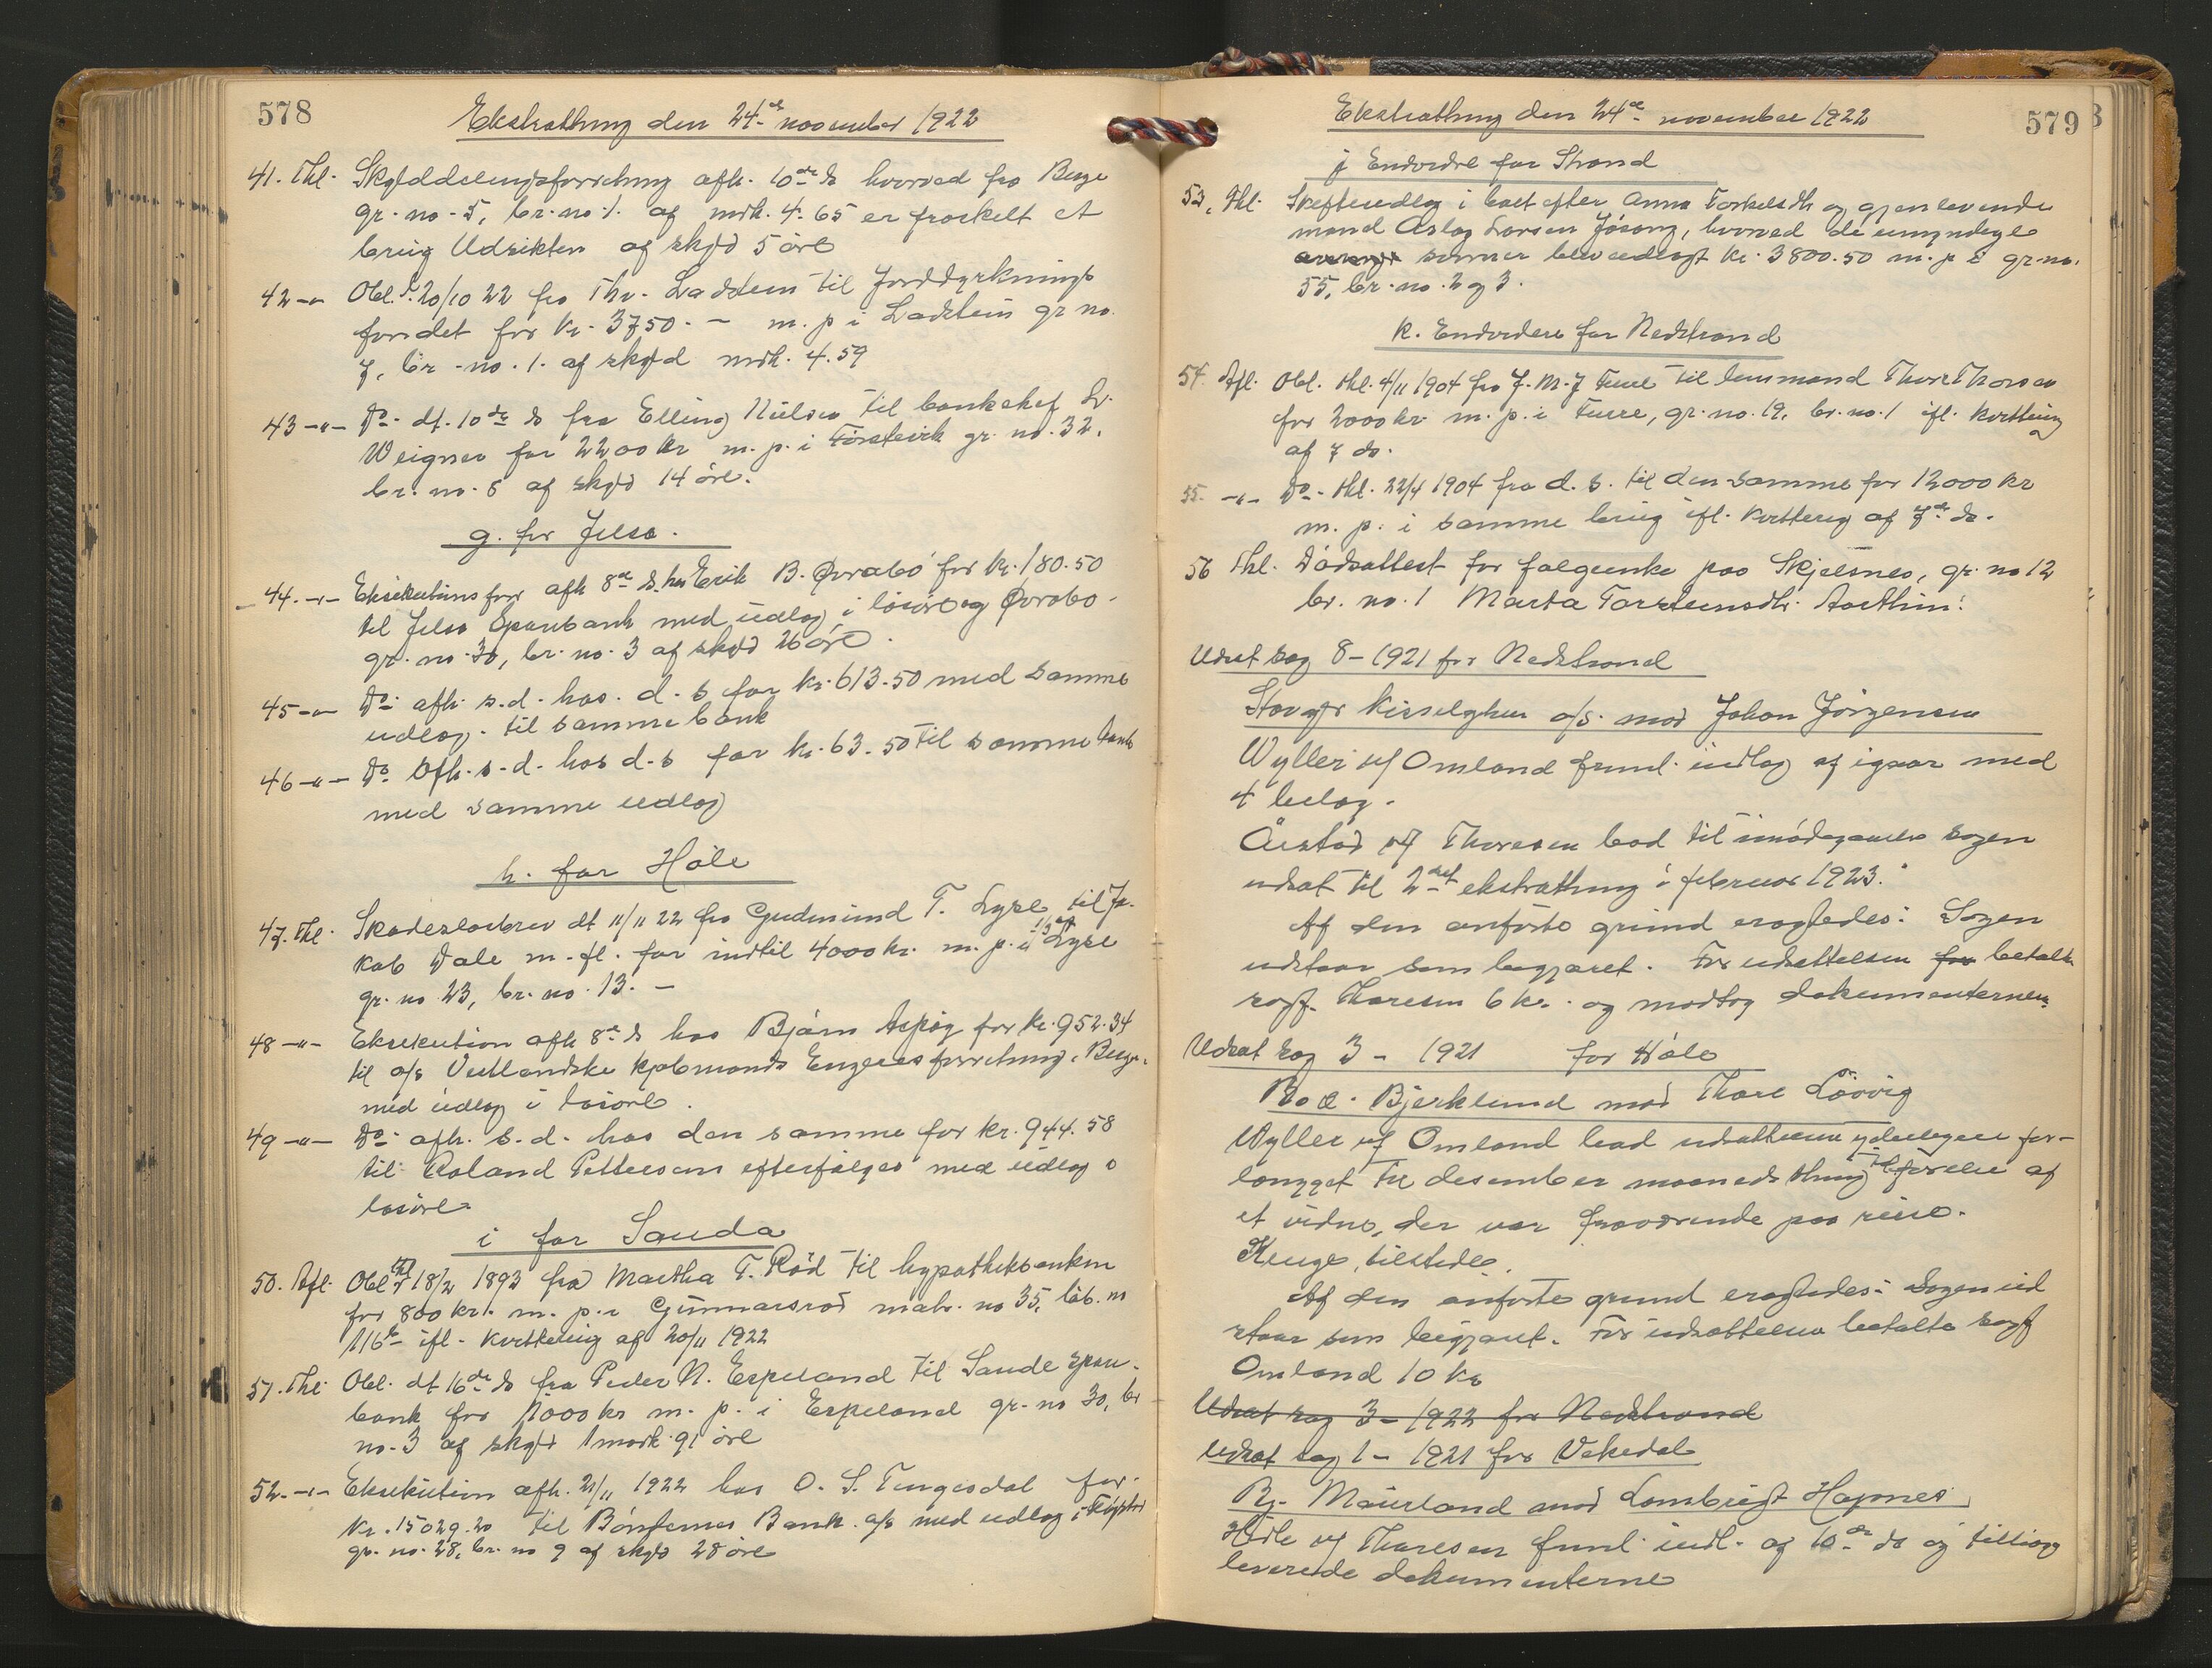 578
Ekstrathing den 24de november 1922
41. Thl. Skylddelingsforretning afh. 10de ds hvorved fra Berge
gr. no. 5, br. no. 1. af mrk. 4.65 er fraskelt et
brug Udsikten af skyld 5 øre
42 -"- Obl. d. 20/10 22 fra Thv. Ladstein til Jorddyrknings
fondet for kr. 3750.- m. p i Ladstein gr no.
7, br. no. 1. af skyld mrk. 4.59
43 -"- Do. dt. 10de ds fra Elling Nielsen til bankchef L.
Weigner for 2200 kr m. p. i Førstevik gr. no. 32,
br. no. 8 af skyld 14 øre.
g. for Jelsa.
44. -"- Eksekutionsforr afh 8de ds. hos Erik B. Øvrabø for kr. 180.50
til Jelsa Sparebank med udlæg i løsøre og Øvrabø
gr. no. 30, br. no. 3 af skyld 26 øre.
45 -"- Do. afh. s.d. hos. d. s for kr. 613.50 med samme
udlæg. til samme bank
46 -"- Do. Afh. s. d. hos d. s for kr. 63.50 til samme bank
med samme udlæg
h. for Høle
47. Thl. Skadesløsbrev dt 11/11 22 fra Gudmund T. Lyse til Ja-
kob Dale m. fl. for indtil 4000 kr. m. p. i Lyse
gr. no 23, br. no. 13. -
48 -"- Eksekution afh 8de ds hos Bjørn Aspøy for kr. 952.34
til a/s Vestlandske kjøbmænds Engrosforretning, Bergen.
med udlæg i løsøre.
49 -"- Do. afh. s. d. hos den samme for kr. 944.58
til Roland Pettersens efterfølger med udlæg i
løsøre.
i for Sauda
50. Afl. Obl. thl 18/2 1893 fra Martha T. Rød til hypothekbanken
for 800 kr. m. p. i Gunnarsrød matr. no 35, løb. no
116b ifl. kvittering af 20/11 1922
51. Thl. Obl. dt 16de ds fra Peder N. Espeland til Saude spare-
bank for 1000 kr m. p. i Espeland gr. no 30, br
no. 3 af skyld 1 mark 91 øre
52. -"- Eksekution afh. 21/11 1922 hos O. S. Tengesdal for
kr. 15029.20 til Bøndernes Bank a/s med udlæg i
gr. no. 28, br. no 9 af skyld 28 øre
579
Ekstrathing den 24de november 1922
j Endvidre for Strand
53, Thl. Skifteudlæg i boet efter Anna Torkelsdtr og gjenlevende
mand Aslag Larsen Jøsang, hvorved de umyndige
sønner blev udlagt kr. 3800.50 m. p i gr. no.
55, br. no. 2 og 3.
k. Endvidere for Nedstrand
54. Afl. Obl. thl. 4/11 1904 fra J. M. J Furre til lensmand Thore Thorsen
for 2000 kr. m. p. i Furre, gr. no. 19, br. no. 1 ifl. kvittering
af 7 ds.
55. -"- Do. thl. 22/4 1904 fra d. s. til den samme for 12000 kr
m. p. i samme brug ifl. kvittering af 7de ds.
56 Thl. Dødsattest for folgeenke paa Skjelsnes, gr. no 12
br. no. 1 Marta Torsteinsdtr.
Udsat sag 8 - 1921 for Nedstrand
Stavgr Kisselghur a/s. mod Johan Jørgensen
Wyller v/ Omland freml. indlæg af igaar med
4 bilag.
Aarstad v/ Thoresen bad til imødegaaelse sagen
udsat til 2det ekstrathing i februar 1923.
Af den anførte grund eragtedes: Sagen
udstaar som begjæret. For udsættelsen for betalte
sagf. Thoresen 6 kr. og modtog dokumenterne.
Udsat sag 3 - 1921 for Høle
Bjerklund mod Thore Løvvig
Wyller v/ Omland bad udsættelsen yderligere for-
længet til desember maaneds thing til førelse af
et vidne, der var fraværende paa reise.
Kluge tilstede.
Af den anførte grund eragtedes: Sagen ud
staar som begjæret. For udsættelsen betalte sagf
Omland 10 kr
Udsat sag 3 - 1922 for Nedstrand
Udsat sag 1 - 1921 for Vikedal
Bj. Mæland mod Lambrigt Hapnes
Hidle v/ Thoresen freml. indl. af 10de ds og
leverede dokumenterne